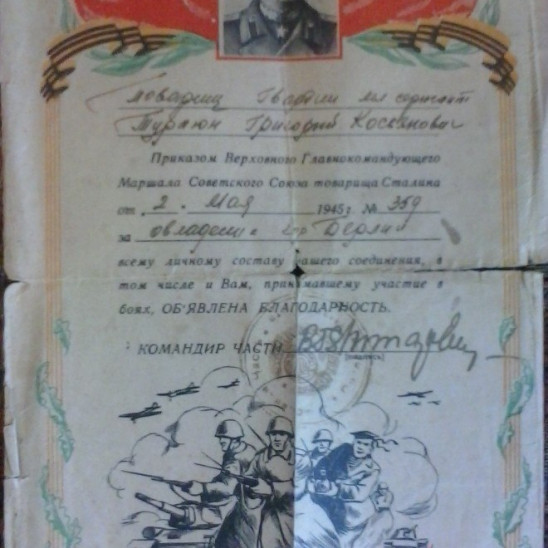 товарищ Гвардии мл сержант
Григорий
Приказом Верховного Главнокомандующего
Маршала Советского Союза товарища Сталина
от 2. Мая 1945 г. № 359
за овладение гор Берлин
всему личному составу нашего соединения, в
том числе и Вам, принимавшему участие в
боях, ОБ'ЯВЛЕНА БЛАГОДАРНОСТЬ.
КОМАНДИР ЧАСТИ